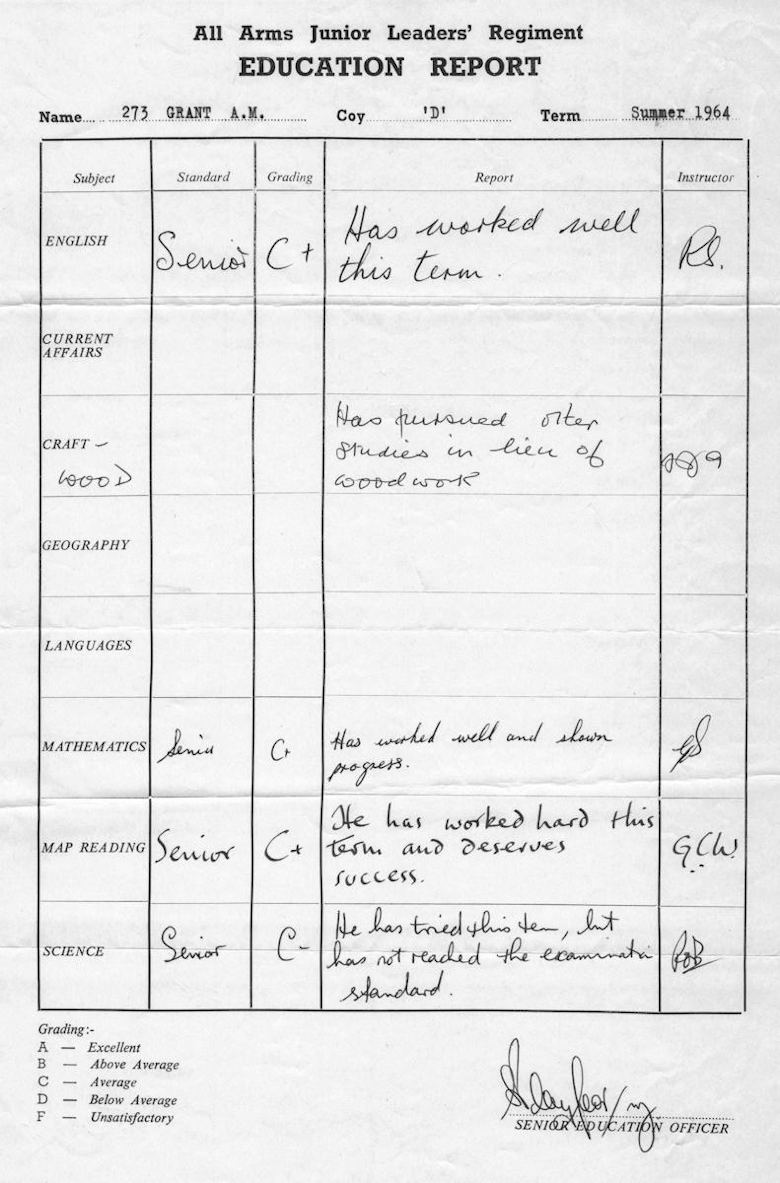 All Arms Junior Leaders' Regiment
EDUCATION REPORT
Name 273 GRANT A.M. Coy 'D' Term Summer 1964
Subject Standard Grading Report Instructor
ENGLISH Senior C+ Has worked well
this term. RS.
CURRENT
AFFAIRS
CRAFT – Has pursued other
WOOD studies in lieu of
woodwork
GEOGRAPHY
LANGUAGES
MATHEMATICS Senior C+ Has worked well and shown
progress. GS
MAP READING Senior C+ He has worked hard this
term and deserves
success. G.C.W.
SCIENCE Senior C- He has tried this term, but
has not reached the examination
standard. ROB
Grading:-
A — Excellent
B — Above Average
C — Average
D — Below Average
F — Unsatisfactory
SENIOR EDUCATION OFFICER